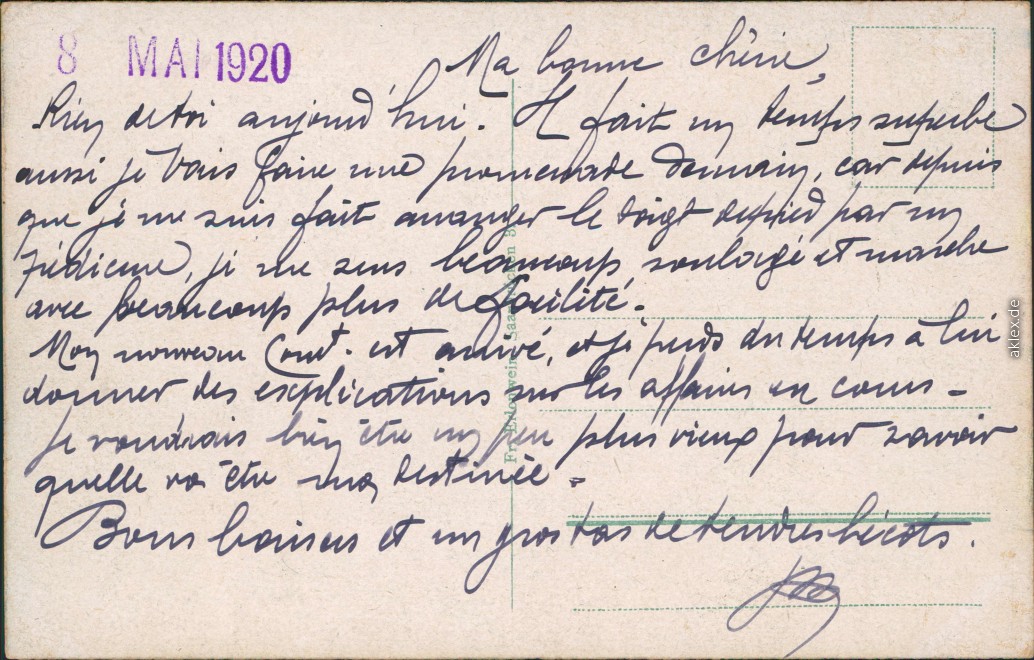 8 MAI 1920
Ma bonne chérie,
Rien de toi aujourd'hui. Il fait un temps superbe
aussi je vais faire une promenade demain, car depuis
que je me suis fait arranger le doigt de pied par un
pédicure, je me sens beaucoup soulagé et marche
avec beaucoup plus de facilité.
Mon nouveau Cont. est arrivé, et je perds du temps à lui
donner des explications sur les affaires en cours -
Je voudrais bien être un peu plus vieux pour savoir
quelle va être ma destinée -
Bons baisers et un gros tas de tendres bécots.
aklex.de